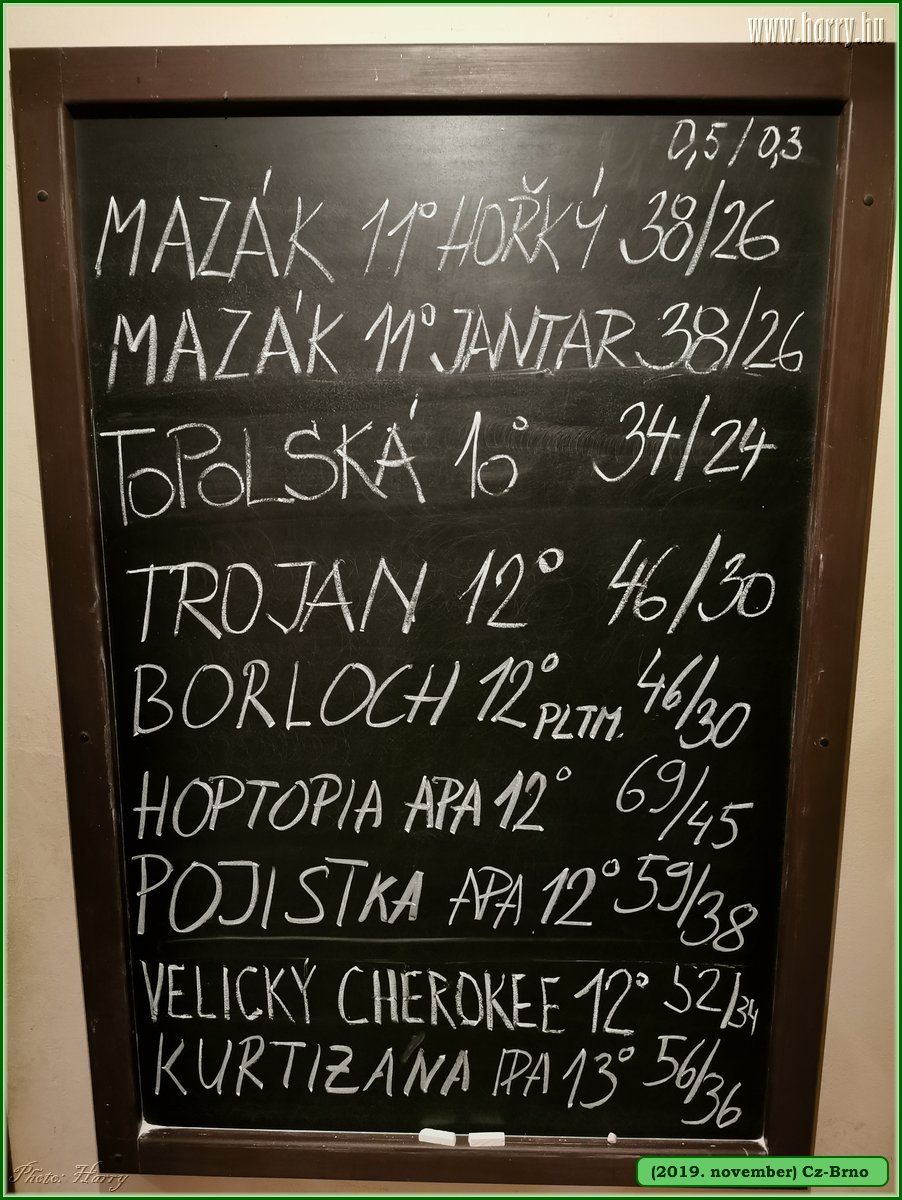 www.harry.hu
0,5/0,3
MAZÁK 11° HOŘKÝ 38/26
MAZÁK 11° JANTAR 38/26
TOPOLSKÁ 10° 34/24
TROJAN 12° 46/30
BORLOCH 12° PLTM. 46/30
HOPTOPIA APA 12° 69/45
POJISTKA APA 12° 59/38
VELICKÝ CHEROKEE 12° 52/34
KURTIZÁNA IPA 13° 56/36
(2019. november) Cz-Brno
Photo: Harry